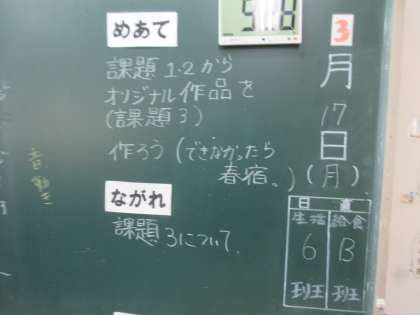 めあて
課題1.2から
オリジナル作品を
(課題3)
作ろう(できなかったら
春宿。)
ながれ
課題3について
3
月
17
日
(月)
日直
生活 給食
6 B
班 班